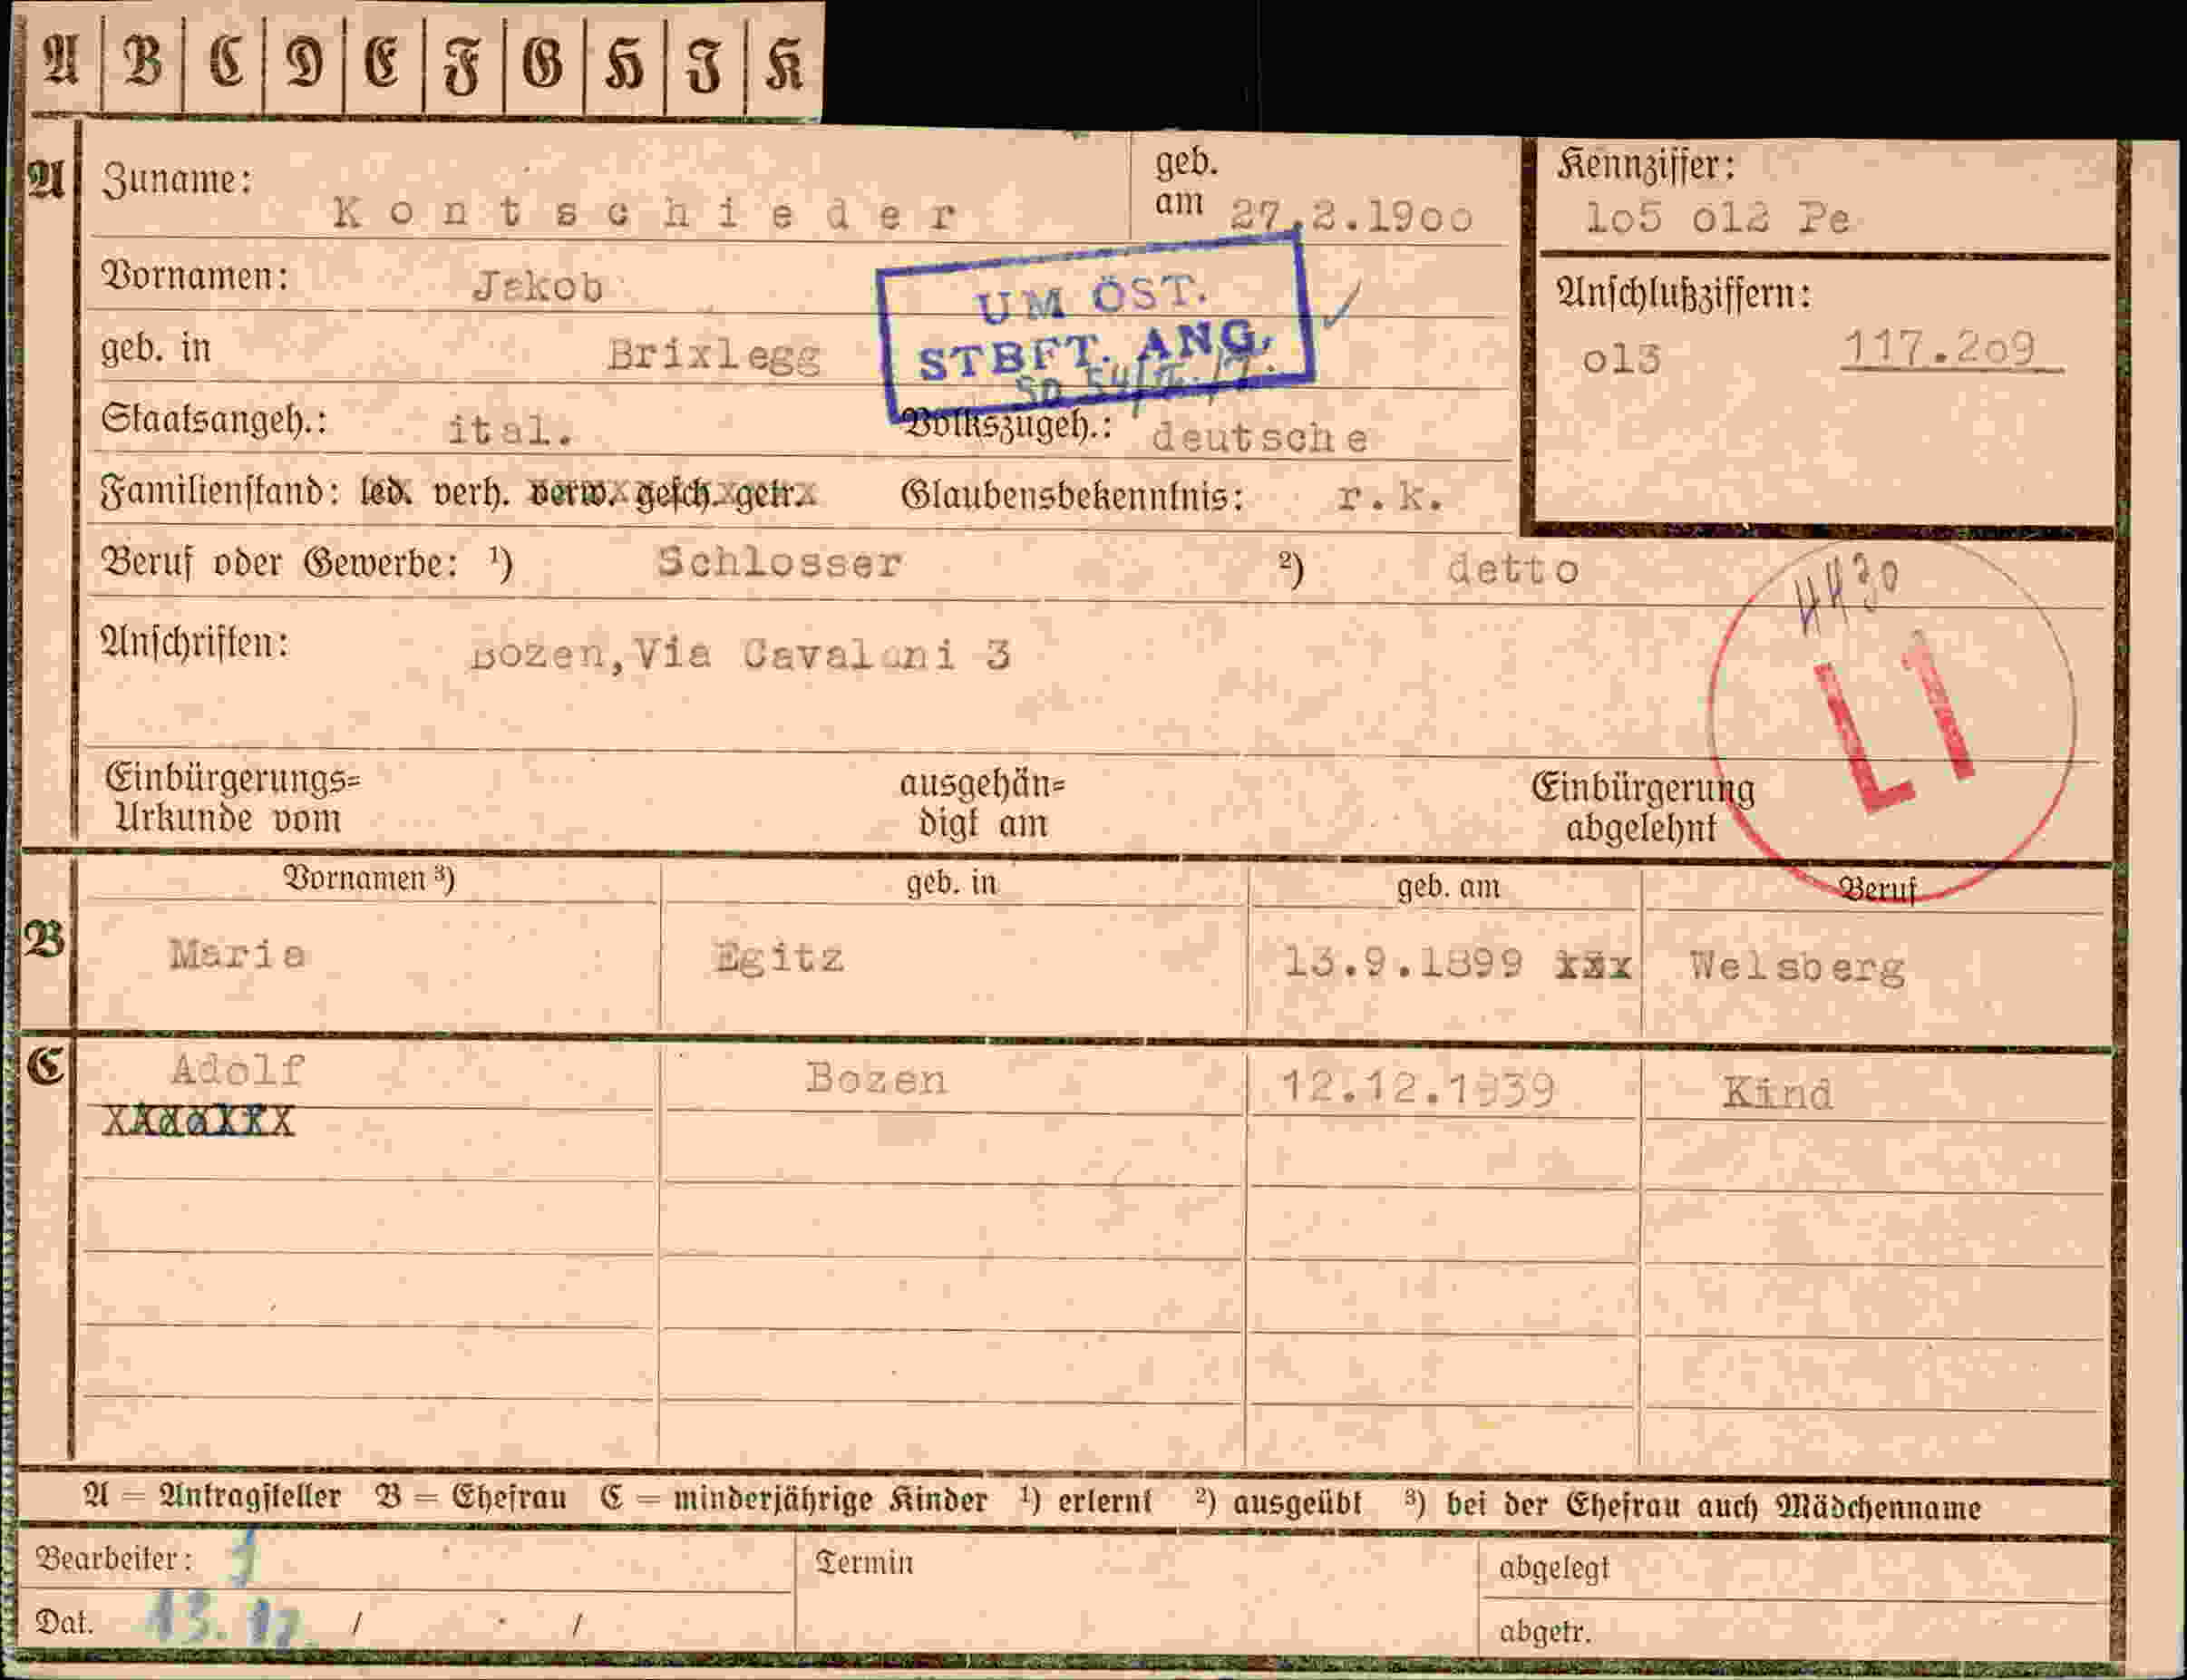 A B C D E F G H I K
A
Zuname: Kontschieder
geb. am 27.2.1900
Kennziffer:
1o5 o12 Pe
Vornamen: Jakob
UM ÖST.
STBFT. ANG.
Anschlußziffern:
o13 117.2o9
geb. in Brixlegg
Staatsangeh.: ital. Volkszugeh.: deutsche
Familienstand: led. verh. verw. gesch. getr. Glaubensbekenntnis: r.k.
Beruf oder Gewerbe: ¹) Schlosser ²) detto
Anschriften: Bozen,Via 3
L1
Einbürgerungs=
Urkunde vom
ausgehän=
digt am
Einbürgerung
abgelehnt
Vornamen ³) geb. in geb. am Beruf
B Maria Egitz 13.9.1899 xxx Welsberg
C Adolf Bozen 12.12.1939 Kind
A = Antragsteller B = Ehefrau C = minderjährige Kinder ¹) erlernt ²) ausgeübt ³) bei der Ehefrau auch Mädchenname
Bearbeiter: Termin abgelegt
Dat. 13.12. / /
abgetr.